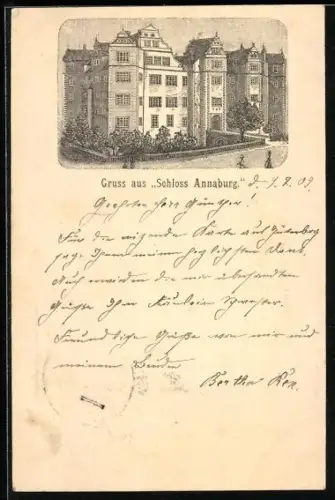 Gruss aus „Schloss Annaburg." d. 7.8.09
Geehrter Herr Günther!
Für die reizende Karte aus Güterberg
sage Ihnen meinen herzlichsten Dank.
Auch erwidere die mir übersandten
Grüße Ihrer Fräulein Schwester.
Freundliche Grüße von mir und
meinem Bruder
Bertha